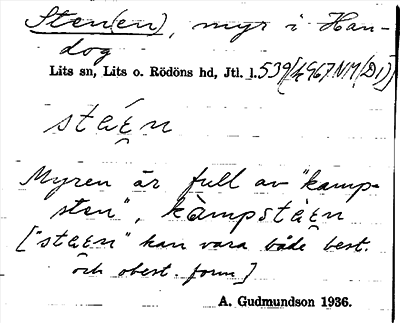 Sten(en), myr i Han-
dog
Lits sn, Lits o. Rödöns hd, Jtl. l. 539
stæ̀n
Myren är full av "kamp-
sten", kàmpstæ̀n
["stæn" kan vara både best.
och obest. form]
A. Gudmundson 1936.